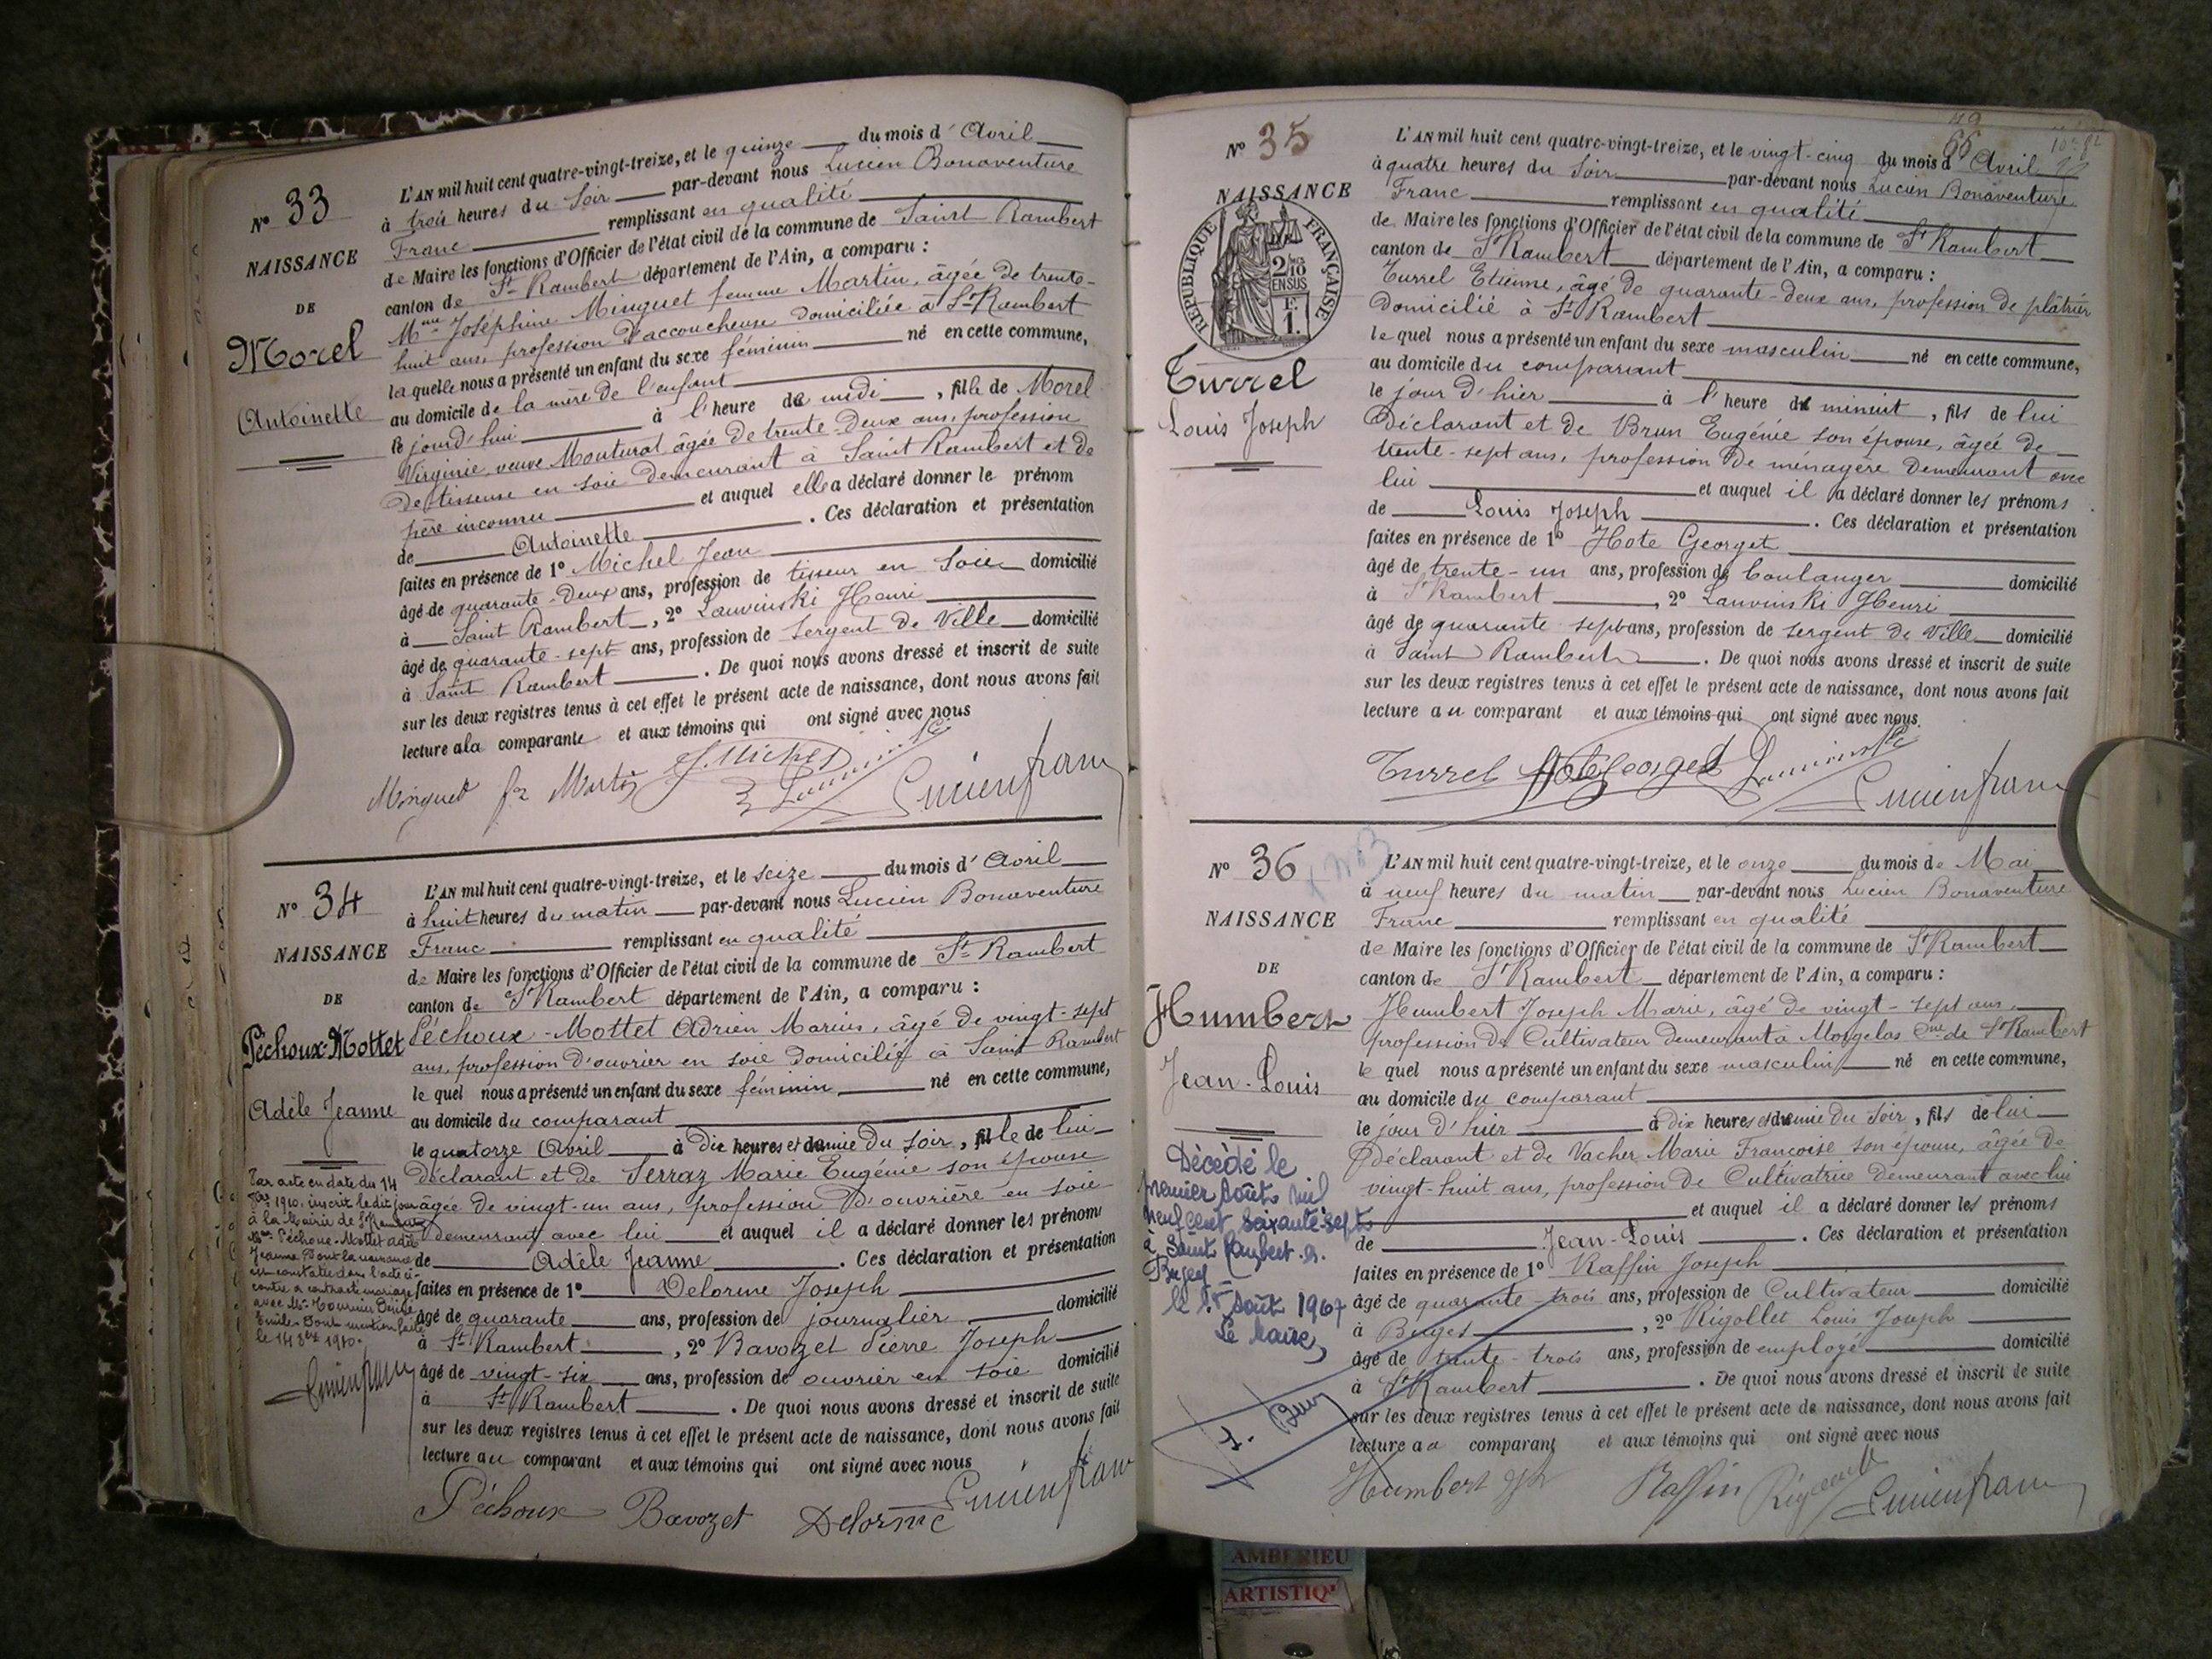 N° 33
NAISSANCE
DE
Morel
Antoinette
L'AN mil huit cent quatre-vingt-treize, et le quinze du mois d'Avril
à trois heures du Soir par-devant nous Lucien Bonaventure
Franc remplissant en qualité
de Maire les fonctions d'Officier de l'état civil de la commune de Saint Rambert
canton de St Rambert département de l'Ain, a comparu :
Mme Joséphine Minguet femme Martin, âgée de trente-
huit ans, profession d'accoucheuse domiciliée à St Rambert
la quelle nous a présenté un enfant du sexe féminin né en cette commune,
au domicile de la mère de l'enfant
le jourd'hui à l'heure de midi, fille de Morel
Virginie, veuve Mouturat âgée de trente-deux ans, profession
de tisseuse en soie demeurant à Saint Rambert et de
père inconnu et auquel elle a déclaré donner le prénom
de Antoinette. Ces déclaration et présentation
faites en présence de 1° Michel Jean
âgé de quarante-deux ans, profession de tisseur en soie domicilié
à Saint Rambert, 2° Lauvinski Henri
âgé de quarante-sept ans, profession de Sergent de Ville domicilié
à Saint Rambert. De quoi nous avons dressé et inscrit de suite
sur les deux registres tenus à cet effet le présent acte de naissance, dont nous avons fait
lecture à la comparante et aux témoins qui ont signé avec nous
Minguet fe Martin J. Michel Lauvinski Lucien franc
N° 34
NAISSANCE
DE
Péchoux-Mottet
Adèle Jeanne
L'AN mil huit cent quatre-vingt-treize, et le seize du mois d'Avril
à huit heures du matin par-devant nous Lucien Bonaventure
Franc remplissant en qualité
de Maire les fonctions d'Officier de l'état civil de la commune de St Rambert
canton de St Rambert département de l'Ain, a comparu :
Péchoux-Mottet Adrien Marius, âgé de vingt-sept
ans, profession d'ouvrier en soie domicilié à Saint Rambert
le quel nous a présenté un enfant du sexe féminin né en cette commune,
au domicile du comparant
le quatorze Avril à dix heures et demie du soir, fille de lui
déclarant et de Serraz Marie Eugénie son épouse
âgée de vingt-un ans, profession d'ouvrière en soie
demeurant avec lui et auquel il a déclaré donner les prénoms
de Adèle Jeanne. Ces déclaration et présentation
faites en présence de 1° Delorme Joseph
âgé de quarante ans, profession de journalier domicilié
à St Rambert, 2° Bavozet Pierre Joseph
âgé de vingt-six ans, profession de ouvrier en soie domicilié
à St Rambert. De quoi nous avons dressé et inscrit de suite
sur les deux registres tenus à cet effet le présent acte de naissance, dont nous avons fait
lecture au comparant et aux témoins qui ont signé avec nous
Par acte en date du 14
1910, inscrit ledit jour
à la Mairie de St Rambert
Mme Péchoux-Mottet Adèle
Jeanne dont la naissance
est constatée dans l'acte ci-
contre a contracté mariage
avec Mr
Emile. Dont mention faite
le 14 1910.
Lucien franc
Péchoux Bavozet Delorme Lucien franc
N° 35
NAISSANCE
RÉPUBLIQUE FRANÇAISE
2/10
EN SUS
1 F.
Turrel
Louis Joseph
66
L'AN mil huit cent quatre-vingt-treize, et le vingt-cinq du mois d'Avril
à quatre heures du Soir par-devant nous Lucien Bonaventure
Franc remplissant en qualité
de Maire les fonctions d'Officier de l'état civil de la commune de St Rambert
canton de St Rambert département de l'Ain, a comparu :
Turrel Etienne, âgé de quarante-deux ans, profession de plâtrier
domicilié à St Rambert
le quel nous a présenté un enfant du sexe masculin né en cette commune,
au domicile du comparant
le jour d'hier à l'heure de minuit, fils de lui
déclarant et de Brun Eugénie son épouse, âgée de
trente-sept ans, profession de ménagère demeurant avec
lui et auquel il a déclaré donner les prénoms
de Louis Joseph. Ces déclaration et présentation
faites en présence de 1° Hote Georget
âgé de trente-un ans, profession de boulanger domicilié
à St Rambert, 2° Lauvinski Henri
âgé de quarante sept ans, profession de sergent de Ville domicilié
à Saint Rambert. De quoi nous avons dressé et inscrit de suite
sur les deux registres tenus à cet effet le présent acte de naissance, dont nous avons fait
lecture au comparant et aux témoins qui ont signé avec nous
Turrel Hote Georget Lauvinski Lucien franc
N° 36
NAISSANCE
DE
Humbert
Jean-Louis
L'AN mil huit cent quatre-vingt-treize, et le onze du mois de Mai
à neuf heures du matin par-devant nous Lucien Bonaventure
Franc remplissant en qualité
de Maire les fonctions d'Officier de l'état civil de la commune de St Rambert
canton de St Rambert département de l'Ain, a comparu :
Humbert Joseph Marie, âgé de vingt-sept ans,
profession de Cultivateur demeurant à Morgelas Cne de St Rambert
le quel nous a présenté un enfant du sexe masculin né en cette commune,
au domicile du comparant
le jour d'hier à dix heures et demie du Soir, fils de lui
déclarant et de Vacher Marie Françoise son épouse, âgée de
vingt-huit ans, profession de Cultivatrice demeurant avec lui
et auquel il a déclaré donner les prénoms
de Jean-Louis. Ces déclaration et présentation
faites en présence de 1° Raffin Joseph
âgé de quarante-trois ans, profession de Cultivateur domicilié
à Buges, 2° Rigollet Louis Joseph
âgé de trente-trois ans, profession de employé domicilié
à St Rambert. De quoi nous avons dressé et inscrit de suite
sur les deux registres tenus à cet effet le présent acte de naissance, dont nous avons fait
lecture au comparant et aux témoins qui ont signé avec nous
Décédé le
premier Août mil
neuf cent soixante-sept
à Saint Rambert-en-
Bugey
le 1er Août 1967
Le Maire,
Humbert Raffin Rigollet Lucien franc
AMBERIEU
ARTISTIQ